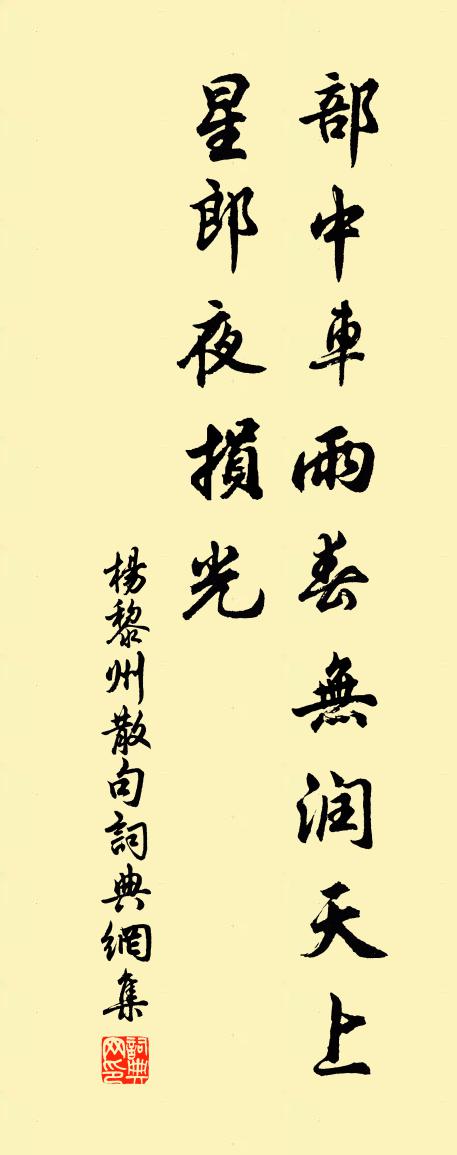 部中車雨春無润天上
星郎夜損光
楊黎州散句詞典網集
詞典网印